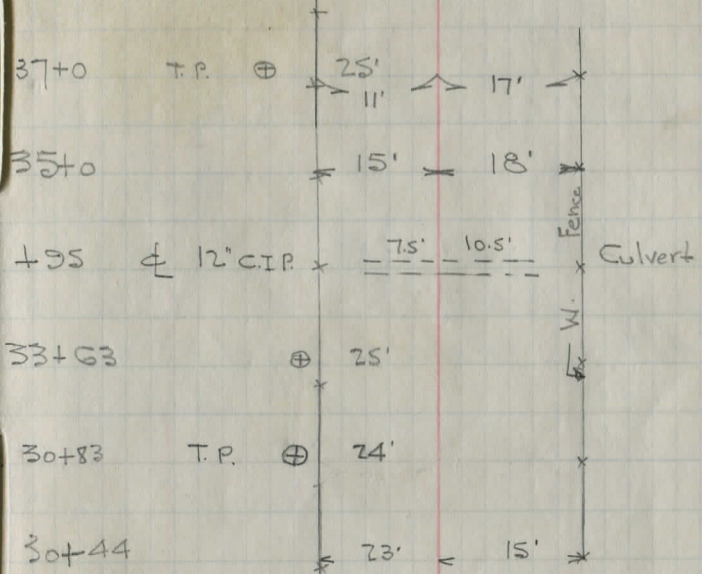 37+0 T.P. ⊕ 25'
11' 17'
35+0 15' 18'
+95 ℄ 12" C.I.P. 7.5' 10.5' Culvert
W. Fence
33+63 ⊕ 25'
30+83 T.P. ⊕ 24'
30+44 23' 15'